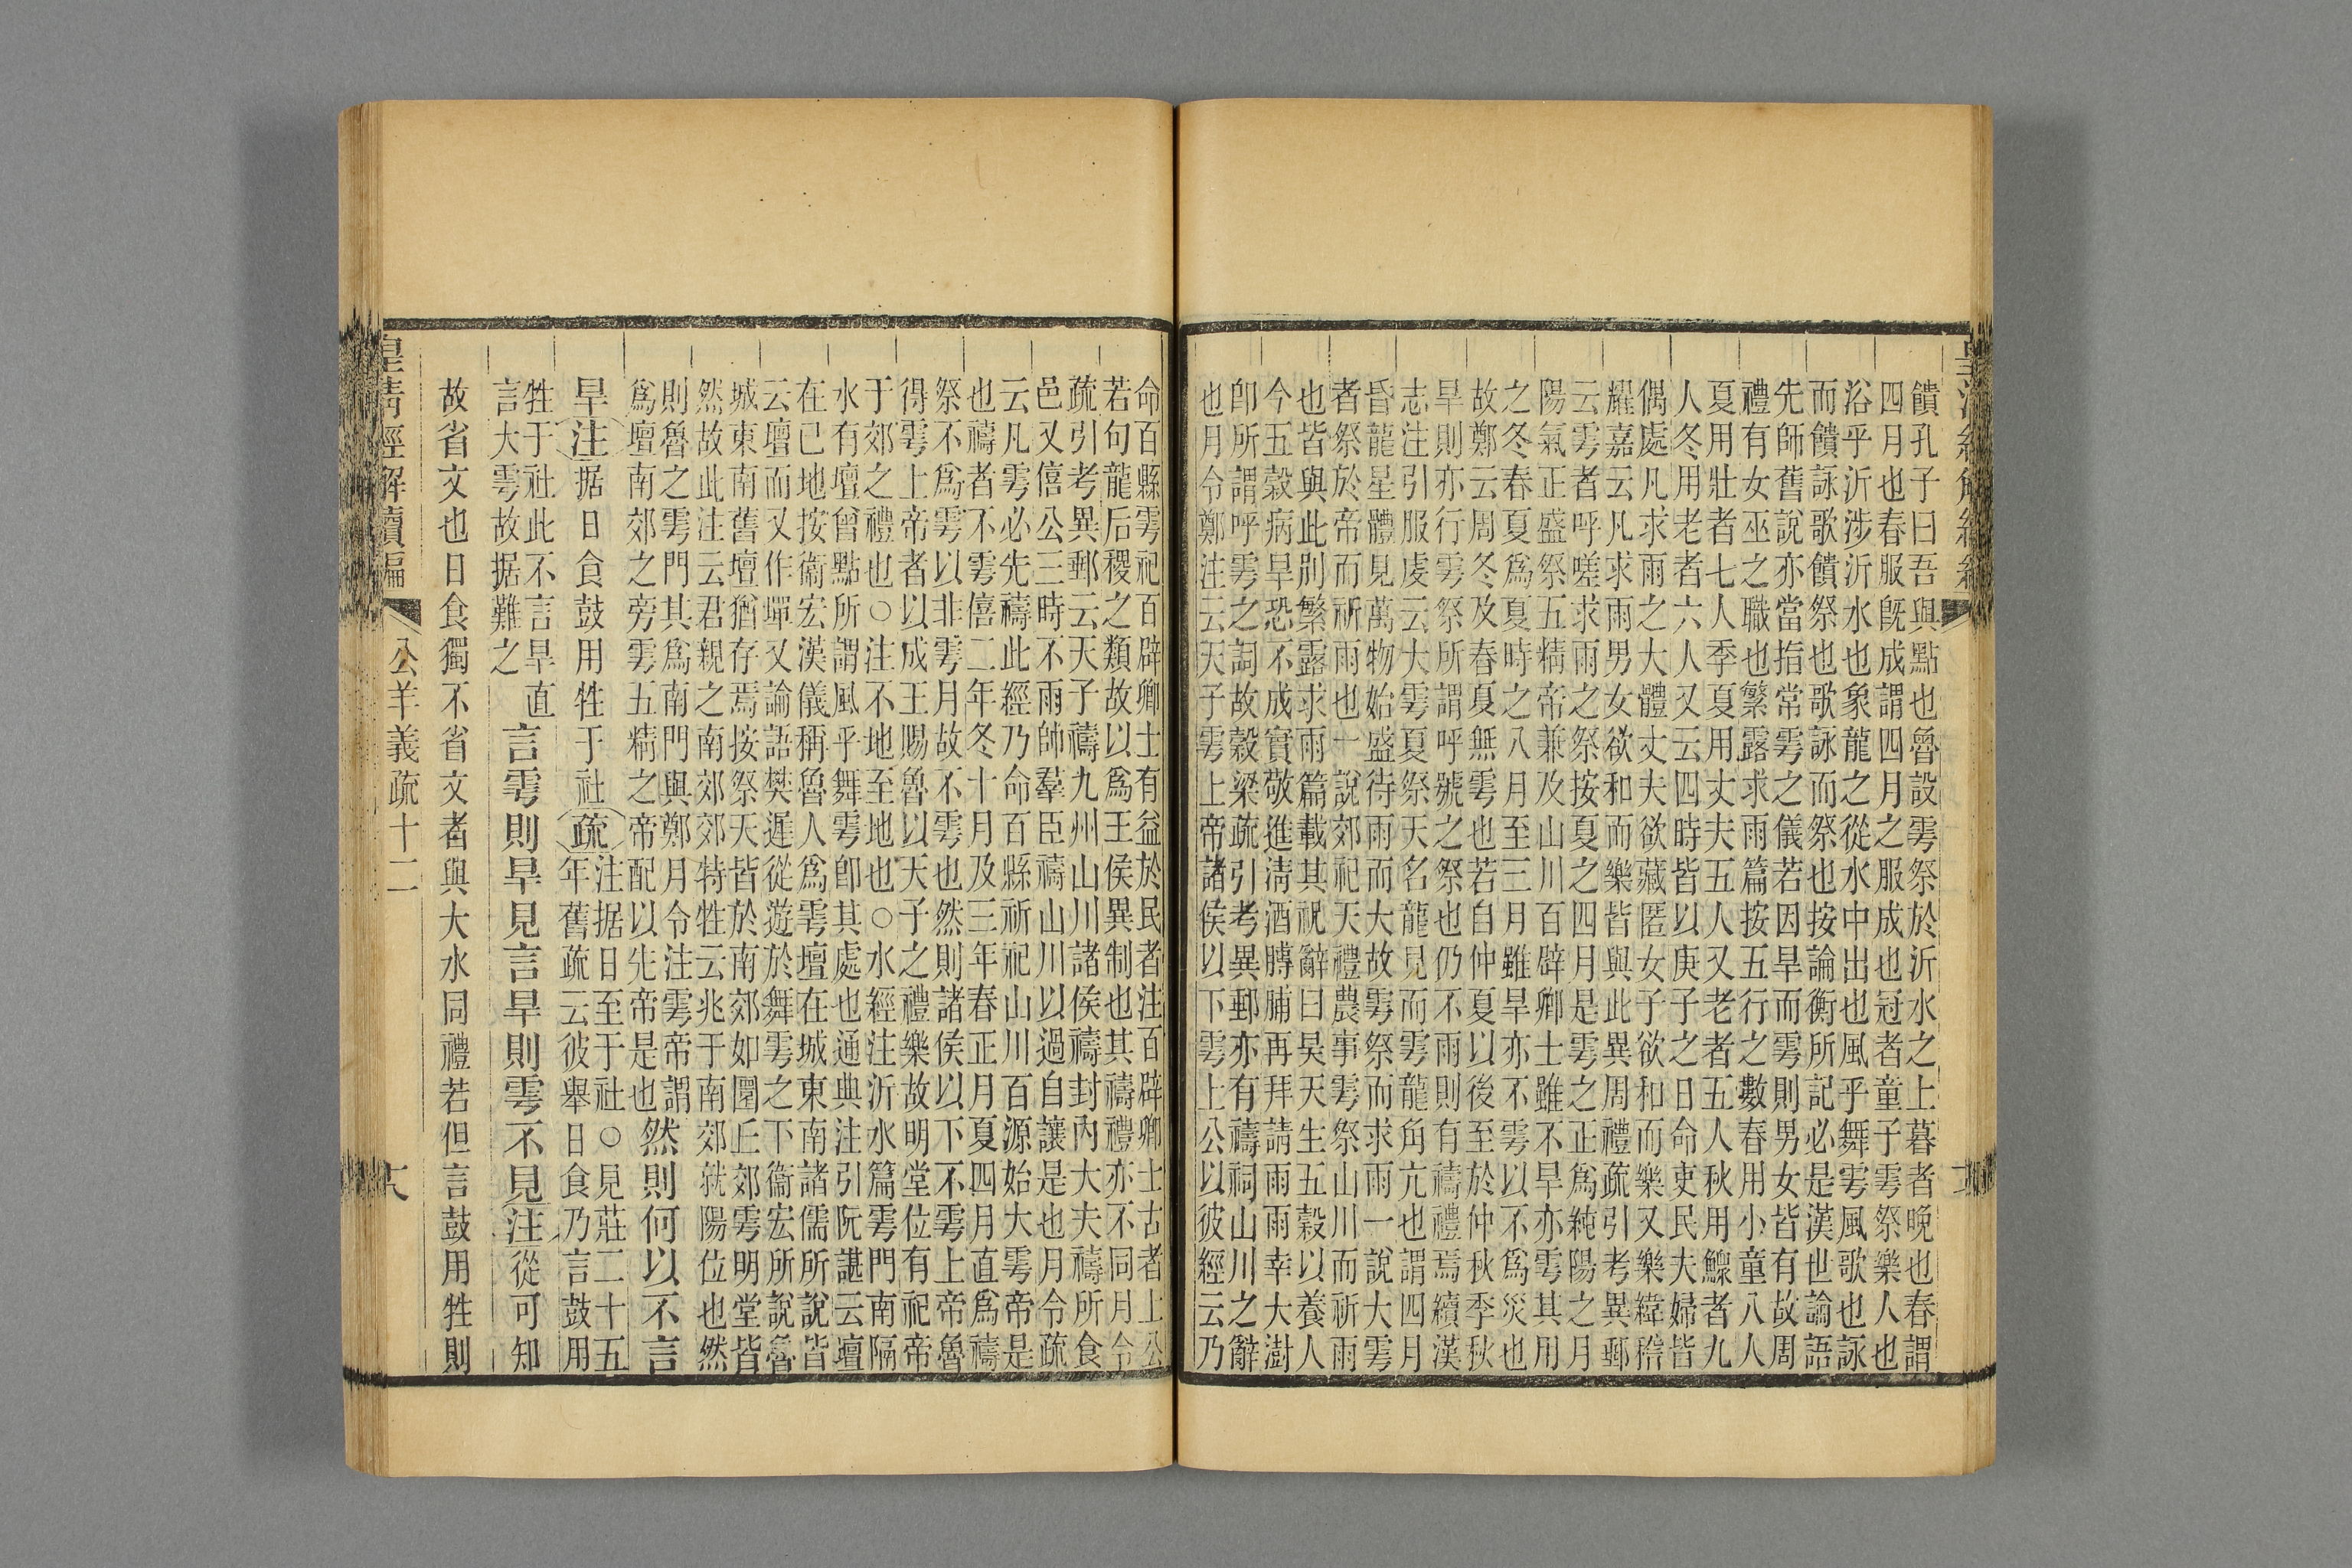 饋孔子曰吾與點也魯設雩祭於沂水之上暮者晚也春謂
四月也春服旣成謂四月之服成也冠者童子雩祭樂人也
浴乎沂涉沂水也象龍之從水中出也風乎舞雩風歌也詠
而饋詠歌饋祭也歌詠而祭也按論衡所記必是漢世論語
先師舊說亦當指常雩之儀若因旱而雩則男女皆有故周
禮有女巫之職也繁露求雨篇按五行之數春用小童八人
夏用壯者七人季夏用丈夫五人又老者五人秋用鰥者九
人冬用老者六人又云四時皆以庚子之日命吏民夫婦皆
偶處凡求雨之大體丈夫欲藏匿女子欲和而樂又樂緯稽
耀嘉云凡求雨男女欲和而樂皆與此異周禮疏引考異郵
云雩者呼嗟求雨之祭按夏之四月是雩之正爲純陽之月
陽氣正盛祭五精帝兼及山川百辟卿士雖不旱亦雩其用
之冬春夏爲夏時之八月至三月雖旱亦不雩以不爲災也
故鄭云周冬及春夏無雩也若自仲夏以後至於仲秋季秋
旱則亦行雩祭所謂呼號之祭也仍不雨則有禱禮焉續漢
志注引服虔云大雩夏祭天名龍見而雩龍角亢也謂四月
昏龍星體見萬物始盛待雨而大故雩祭而求雨一說大雩
者祭於帝而祈雨也一說郊祀天禮農事雩祭山川而祈雨
也皆與此別繁露求雨篇載其祝辭曰昊天生五穀以養人
今五穀病旱恐不成實敬進淸酒膊脯再拜請雨雨幸大澍
卽所謂呼雩之詞故穀梁疏引考異郵亦有禱祠山川之辭
也月令鄭注云天子雩上帝諸侯以下雩上公以彼經云乃
命百縣雩祀百辟卿士有益於民者注百辟卿士古者上公
若句龍后稷之類故以爲王侯異制也其禱禮亦不同月令
疏引考異郵云天子禱九州山川諸侯禱封內大夫禱所食
邑又僖公三時不雨帥羣臣禱山川以過自讓是也月令疏
云凡雩必先禱此經乃命百縣祈祀山川百源始大雩帝是
也禱者不雩僖二年冬十月及三年春正月夏四月直爲禱
祭不爲雩以非雩月故不雩也然則諸侯以下不雩上帝魯
得雩上帝者以成王賜魯以天子之禮樂故明堂位有祀帝
于郊之禮也○注不地至地也○水經注沂水篇雩門南隔
水有壇曾點所謂風乎舞雩卽其處也通典注引阮諶云壇
在巳地按衞宏漢儀稱魯人爲雩壇在城東南諸儒所說皆
云壇而又作墠又論語樊遲從遊於舞雩之下衞宏所說魯
城東南舊壇猶存焉按祭天皆於南郊如圜丘郊雩明堂皆
然故此注云君親之南郊郊特牲云兆于南郊就陽位也然
則魯之雩門其爲南門與鄭月令注雩帝謂
爲壇南郊之旁雩五精之帝配以先帝是也 然則何以不言
旱注据日食鼓用牲于社疏注据日至于社○見莊二十五
年舊疏云彼舉日食乃言鼓用
牲于社此不言旱直
言大雩故据難之 言雩則旱見言旱則雩不見注從可知
故省文也日食獨不省文者與大水同禮若但言鼓用牲則
皇淸經解續編 公羊義疏十二